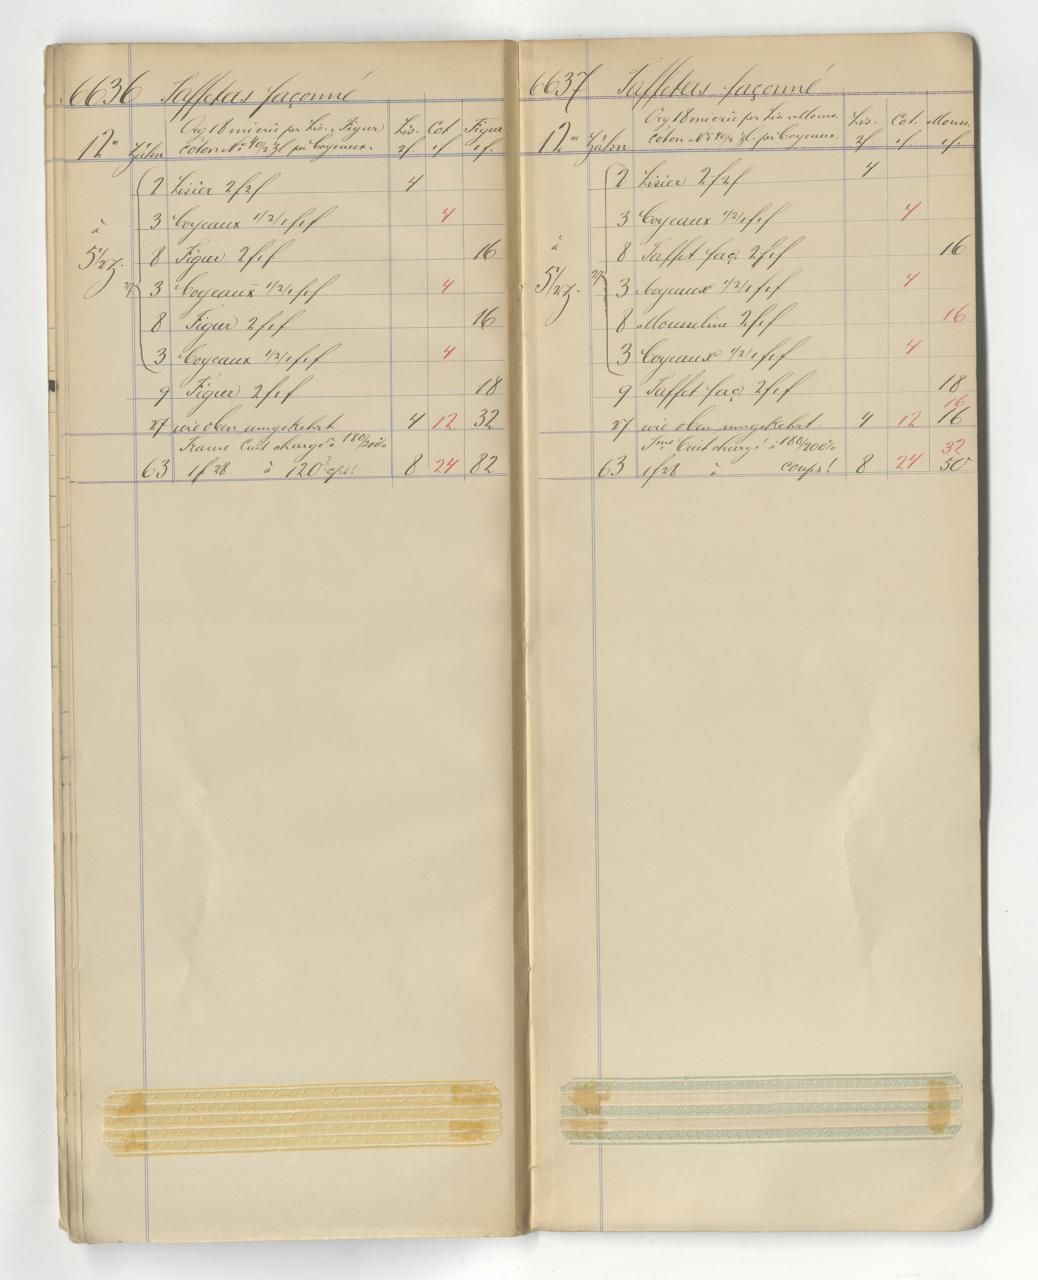 6636 Taffetas façonné
12''' Zähn
Org 18 micrié per Lis. & Figur
Coton No 40/2 Zl per Coyeaux.
Lis. 2f. Cot 1f Figur 1f.
2 Lisier 2f2f 4
3 Coyeaux 1/2/1f1f 4
à
8 Figur 2f1f 16
5 1/2 z.
27 3 Coyeaux 1/2/1f1f 4
8 Figur 2f1f 16
3 Coyeaux 1/2/1f1f 4
9 Figur 2f1f 18
27 wie oben umgekehrt 4 12 32
Trame Cuit chargé à 180/200%
63 1f 28 à 120 cps! 8 24 82
6637 Taffetas façonné
12''' Zähn
Org 18 micrié per Lis & Mous.
Coton No 40/2 Zl. per Coyeaux.
Lis. 2f. Cot. 1f. Mouss. 1f.
2 Lisier 2f2f 4
3 Coyeaux 1/2/1f1f 4
à
8 Taffet faç. 2f1f 16
5 1/2 z.
27 3 Coyeaux 1/2/1f1f 4
8 Mousseline 2f1f 16
3 Coyeaux 1/2/1f1f 4
9 Taffet faç. 2f1f 18
16
27 wie oben umgekehrt. 4 12 16
Tme Cuit chargé à 180/200%
32
63 1f 28 à coups! 8 24 50